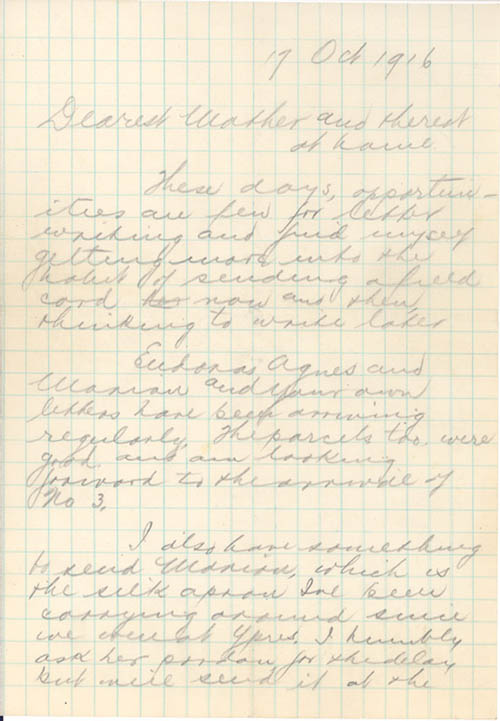 17 Oct 1916
Dearest Mother and the rest
at home
These days, opportun-
ities are few for letter
writing and find myself
getting more into the
habit of sending a field
card now and then,
thinking to write later
Eudoras, Agnes and
Marion and your own
letters have been arriving
regularly. The parcels too were
good and am looking
forward to the arrival of
No 3.
I also have something
to send Marion, which is
the silk apron I've been
carrying around since
we were at Ypres. I humbly
ask her pardon for the delay
but will send it at the